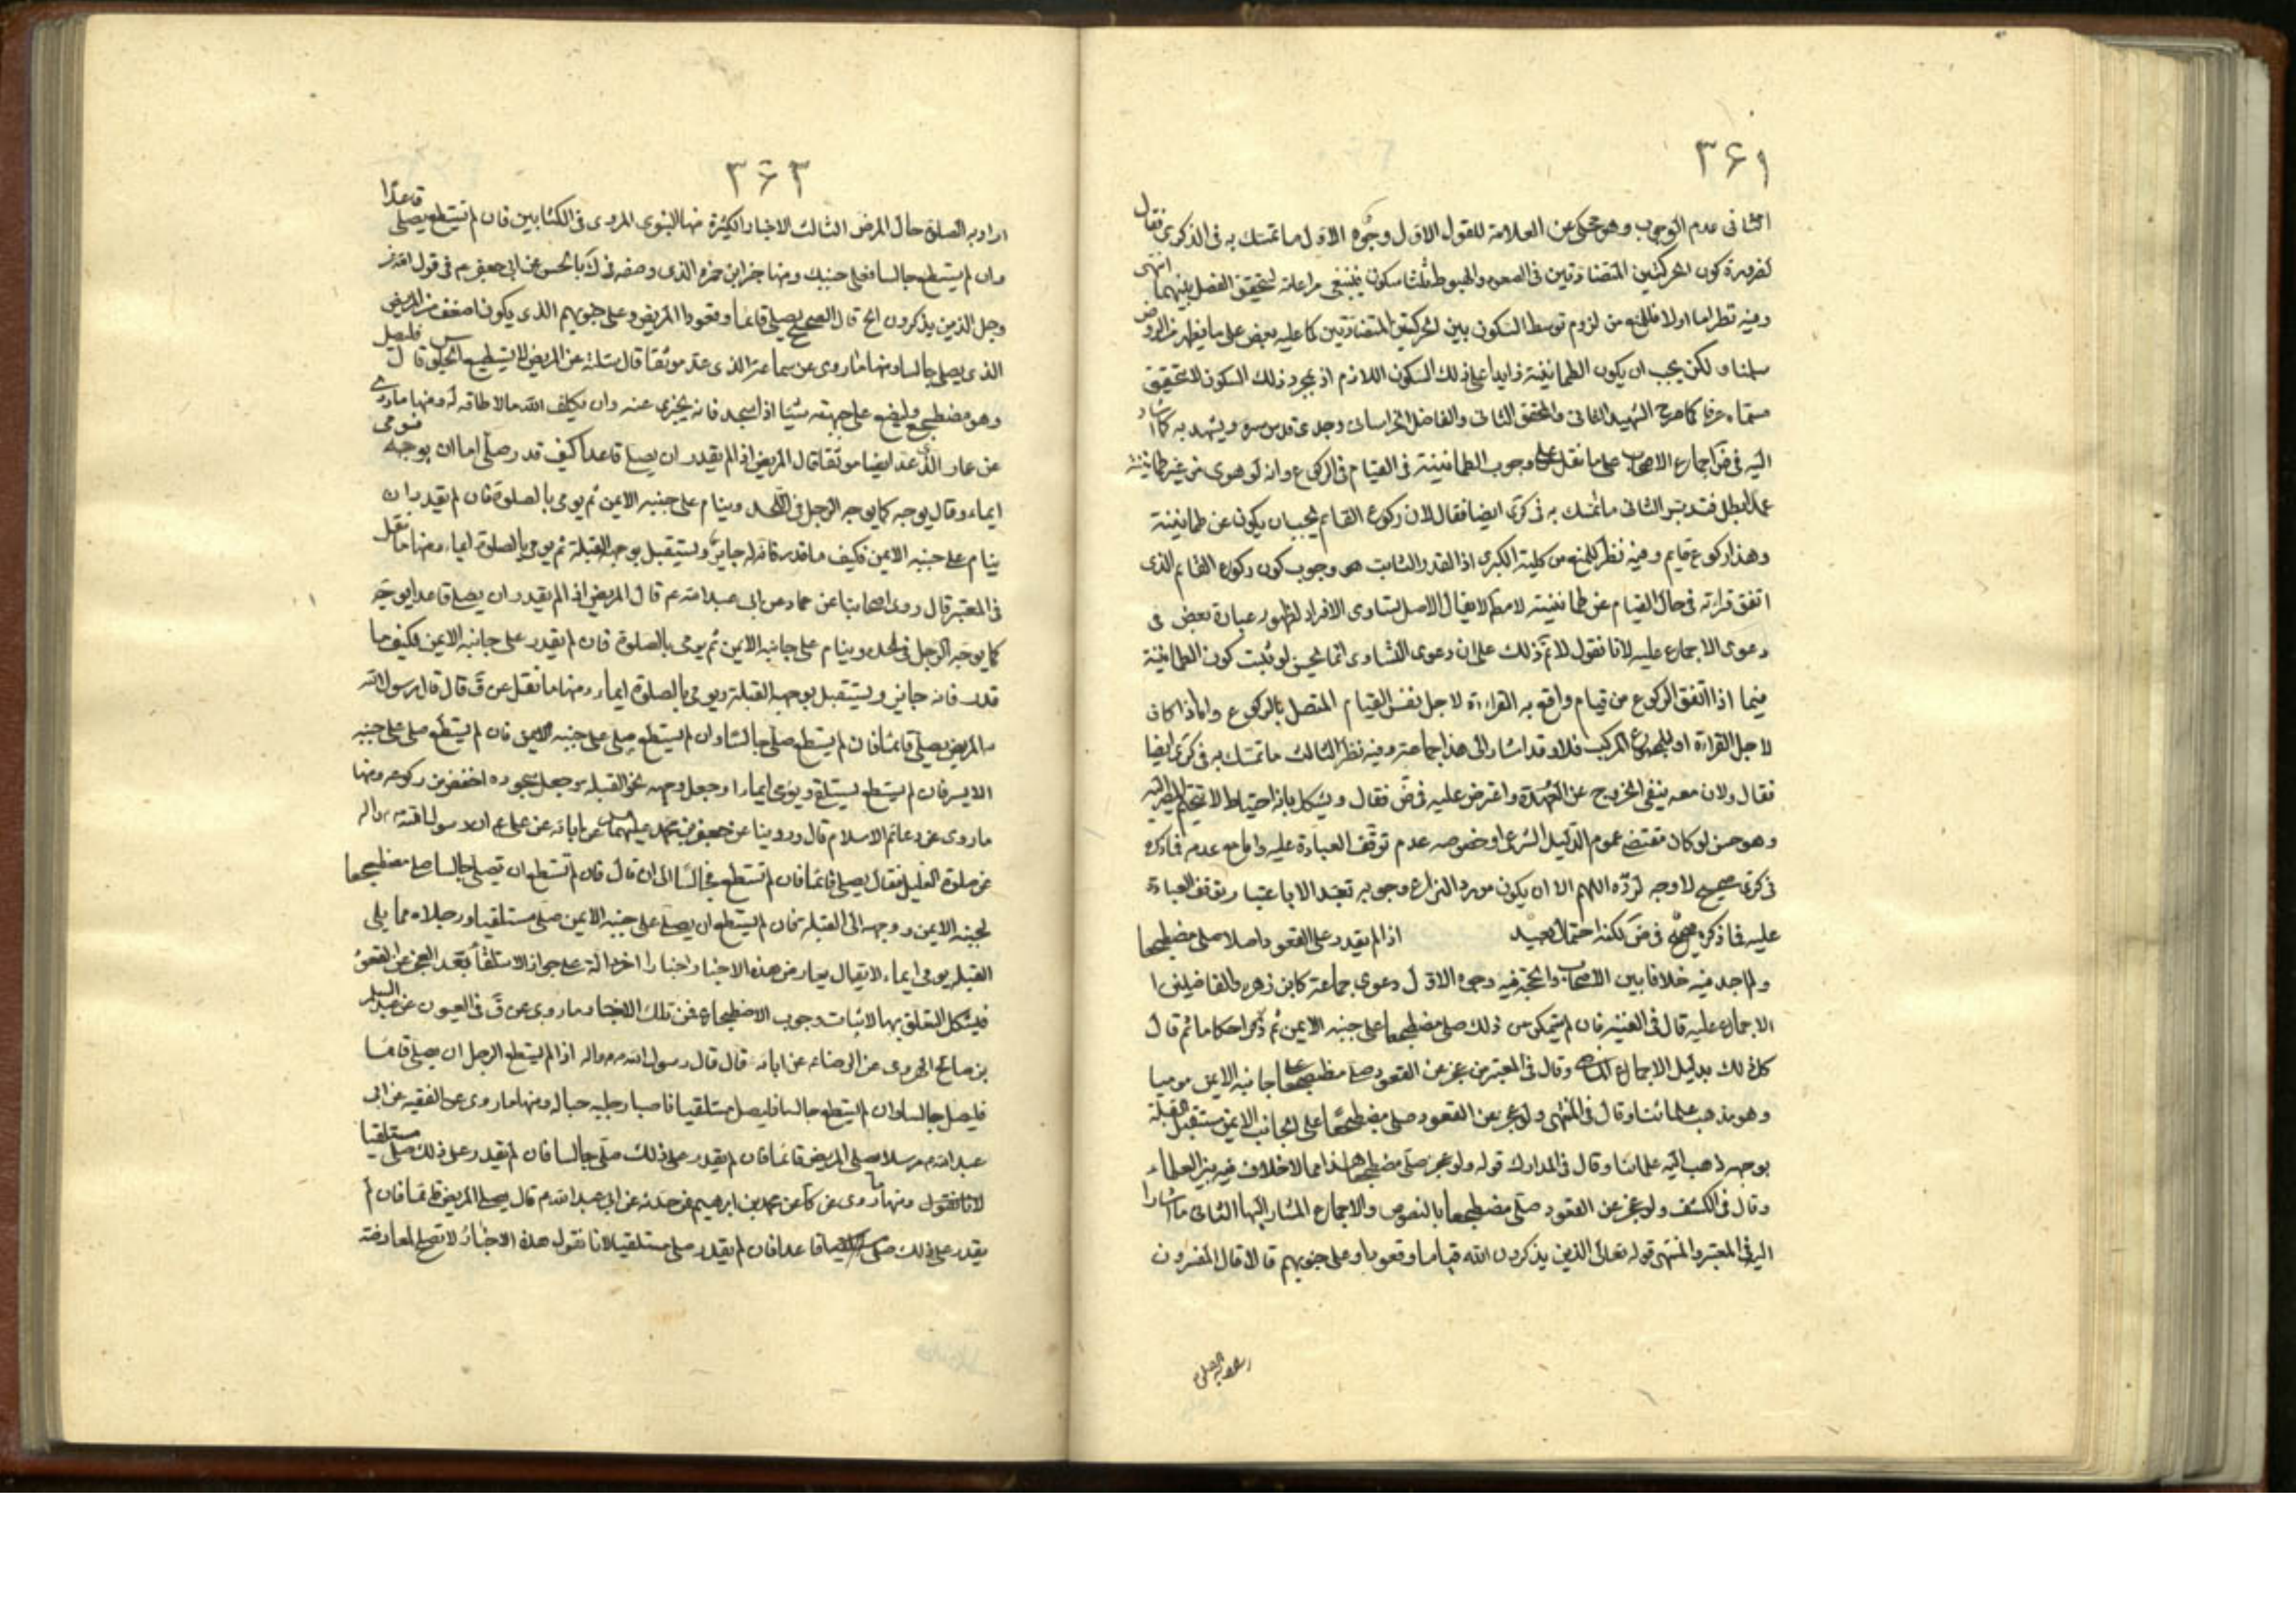 ۳۶۱
الثانى عدم الوجوب وهو محكى عن العلامة للقول الاول وجوه الاول ما تمسك به فى الذكرى فقال
لضرورة كون الحركتين المتضادتين فى الصعود والهبوط بينهما سكون فينبغى مراعاته ليتحقق الفصل بينهما انتهى
وفيه نظر اما اولا فللمنع من لزوم توسط السكون بين الحركتين المتضادتين كما عليه بعض على ما يظهر من الروض
سلمنا ولكن يجب ان يكون الطمانينة زايدا على ذلك السكون اللازم اذ بمجرد ذلك السكون لا يتحقق
مسماه عرفا كما صرح الشهيد الثانى والمحقق الثانى والفاضل الخراسانى وجدى قدس سره ويشهد به كما اشار
اليه فى ض اجماع الاصحاب على ما نقل على وجوب الطمانينة فى القيام فى الركوع وانه لو هوى من غير طمانينة
عمدا بطل فتدبر الثانى ما تمسك به فى كرى ايضا فقال لان ركوع القائم يجب ان يكون عن طمانينة
وهذا ركوع قايم وفيه نظر للمنع من كلية الكبرى اذ القدر الثابت هو وجوب كون ركوع القائم الذى
اتفق قرائته فى حال القيام عن طمانينة لا مطلقا لا يقال الاصل تساوى الافراد لظهور عبارة بعض فى
دعوى الاجماع عليه لانا نقول لا نم ذلك على ان دعوى التساوى انما يحسن لو ثبت كون الطمانينة
فيما اذا اتفق الركوع من قيام واقع به القراءة لاجل نفس القيام المتصل بالركوع واما اذا كانت
لاجل القراءة او للمجموع المركب فلا وقد اشار الى هذا جماعة وفيه نظر الثالث ما تمسك به فى كرى ايضا
فقال ولان معه ينفى الخروج عن العهدة واعترض عليه فى ض فقال ويشكل بانه احتياط لا يتحتم المصير اليه
وهو حسن لو كان مقتضى عموم الدليل الشرعى او خصوصه عدم توقف العبادة عليه واما مع عدمه فما ذكره
فى كرى صحيح لا وجه لرده اللهم الا ان يكون مورد النزاع وجوبه تعبدا لا باعتبار توقف العبادة
عليه فما ذكره صحيح فى ض لكنه احتمال بعيد اذا لم يقدر على القعود اصلا صلى مضطجعا
ولم اجد فيه خلافا بين الاصحاب والحجة فيه وجوه الاول دعوى جماعة كابن زهره والفاضلين
الاجماع عليه قال فى الغنية فان لم يتمكن من ذلك صلى مضطجعا على جنبه الايمن ثم ذكر احكاما ثم قال
كل ذلك بدليل الاجماع وقال فى المعتبر من عجز عن القعود صلى مضطجعا على جانبه الايمن موميا
وهو مذهب علمائنا وقال فى المنتهى ولو عجز عن القعود صلى مضطجعا على الجانب الايمن مستقبل القبلة
بوجهه ذهب اليه علمائنا وقال فى المدارك قوله ولو عجز صلى مضطجعا هذا مما لا خلاف فيه بين العلماء
وقال فى الكشف ولو عجز عن القعود صلى مضطجعا بالنصوص والاجماع المشار اليها الثانى ما اشارا
اليه فى المعتبر والمنتهى قوله تعالى الذين يذكرون الله قياما وقعودا وعلى جنوبهم قالا قال المفسرون
۳۶۲
اراد به الصلوة حال المرض الثالث الاخبار الكثيرة منها النبوى المروى فى الكتابين فان لم تستطع يصلى قاعدا
وان لم يستطع جالسا فعلى جنبك ومنها خبر ابن حمزه الذى وصفه فى ك بالحسن عن ابى جعفر ع م فى قول الله عز
وجل الذين يذكرون الخ قال الصحيح يصلى قائما وقعودا المريض وعلى جنوبهم الذى يكون اضعف من المريض
الذى يصلى جالسا ومنها ما روى عن سماعة الذى عد موثقا قال سئلته عن المريض لا يستطيع الجلوس قال فليصل
وهو مضطجع وليضع على جبهته شيئا اذا سجد فانه يجزى عنه ولن يكلف الله ما لا طاقة له ومنها ما روى
عن عمار الذى عد ايضا موثقا قال المريض اذا لم يقدر ان يصلى قاعدا كيف قدر صلى اما ان يوجه فيومى
ايماء وقال يوجه كما يوجه الرجل فى اللحد وينام على جنبه الايمن ثم يومى بالصلوة فان لم يقدر ان
ينام على جنبه الايمن فكيف ما قدر فانه له جايز ويستقبل بوجهه القبلة ثم يومى بالصلوة ايماء ومنها ما نقل
فى المعتبر قال روى اصحابنا عن حماد عن ابى عبد الله ع م قال المريض اذا لم يقدر ان يصلى قاعدا يوجه
كما يوجه الرجل فى لحده وينام على جانبه الايمن ثم يومى بالصلوة فان لم يقدر على جانبه الايمن فكيف ما
قدر فانه جايز ويستقبل بوجهه القبلة ويومى بالصلوة ايماء ومنها ما نقل عن ق قال قال رسول الله
المريض يصلى قائما فان لم يستطع صلى جالسا وان لم يستطع صلى على جنبه الايمن فان لم يستطع صلى على جنبه
الايسر فان لم يستطع يستلقى ويومى ايماء او جعل وجهه نحو القبلة وجعل سجوده اخفض من ركوعه ومنها
ما روى عن دعائم الاسلام قال وروينا عن جعفر بن محمد عليهما س عن ابائه عن على ع ان رسول الله ص واله
عن صلوة العليل فقال يصلى قائما فان لم تستطع فجالسا الى ان قال فان لم تستطع ان تصلى جالسا صل مضطجعا
لجنبه الايمن ووجهه الى القبلة فان لم يستطع ان يصلى على جنبه الايمن صلى مستلقيا ورجلاه مما يلى
القبلة يومى ايماء لا يقال يعارض هذه الاخبار اخبارا اخر دالة على جواز الاستلقاء بعد العجز عن القعود
فيشكل التعلق بها لاثبات وجوب الاضطجاع فمن تلك الاخبار ما روى عن ق فى العيون عن عبد السلام
بن صالح الهروى عن الرضا ع عن ابائه قال قال رسول الله ص واله اذا لم يستطع الرجل ان يصلى قائما
فليصل جالسا وان لم يستطع جالسا فليصل مستلقيا ناصبا رجليه حباله ومنها ما روى عن الفقيه عن ابى
عبد الله ع م مرسلا صلى المريض قائما فان لم يقدر على ذلك صلى جالسا فان لم يقدر على ذلك صلى مستلقيا
لانا نقول ومنها ما روى عن كا عن محمد بن ابرهيم عمن حدثه عن ابى عبد الله ع م قال يصلى المريض قائما فان لم
يقدر على ذلك صلى قاعدا فان لم يقدر صلى مستلقيا لانا نقول هذه الاخبار لا تصلح لمعارضة